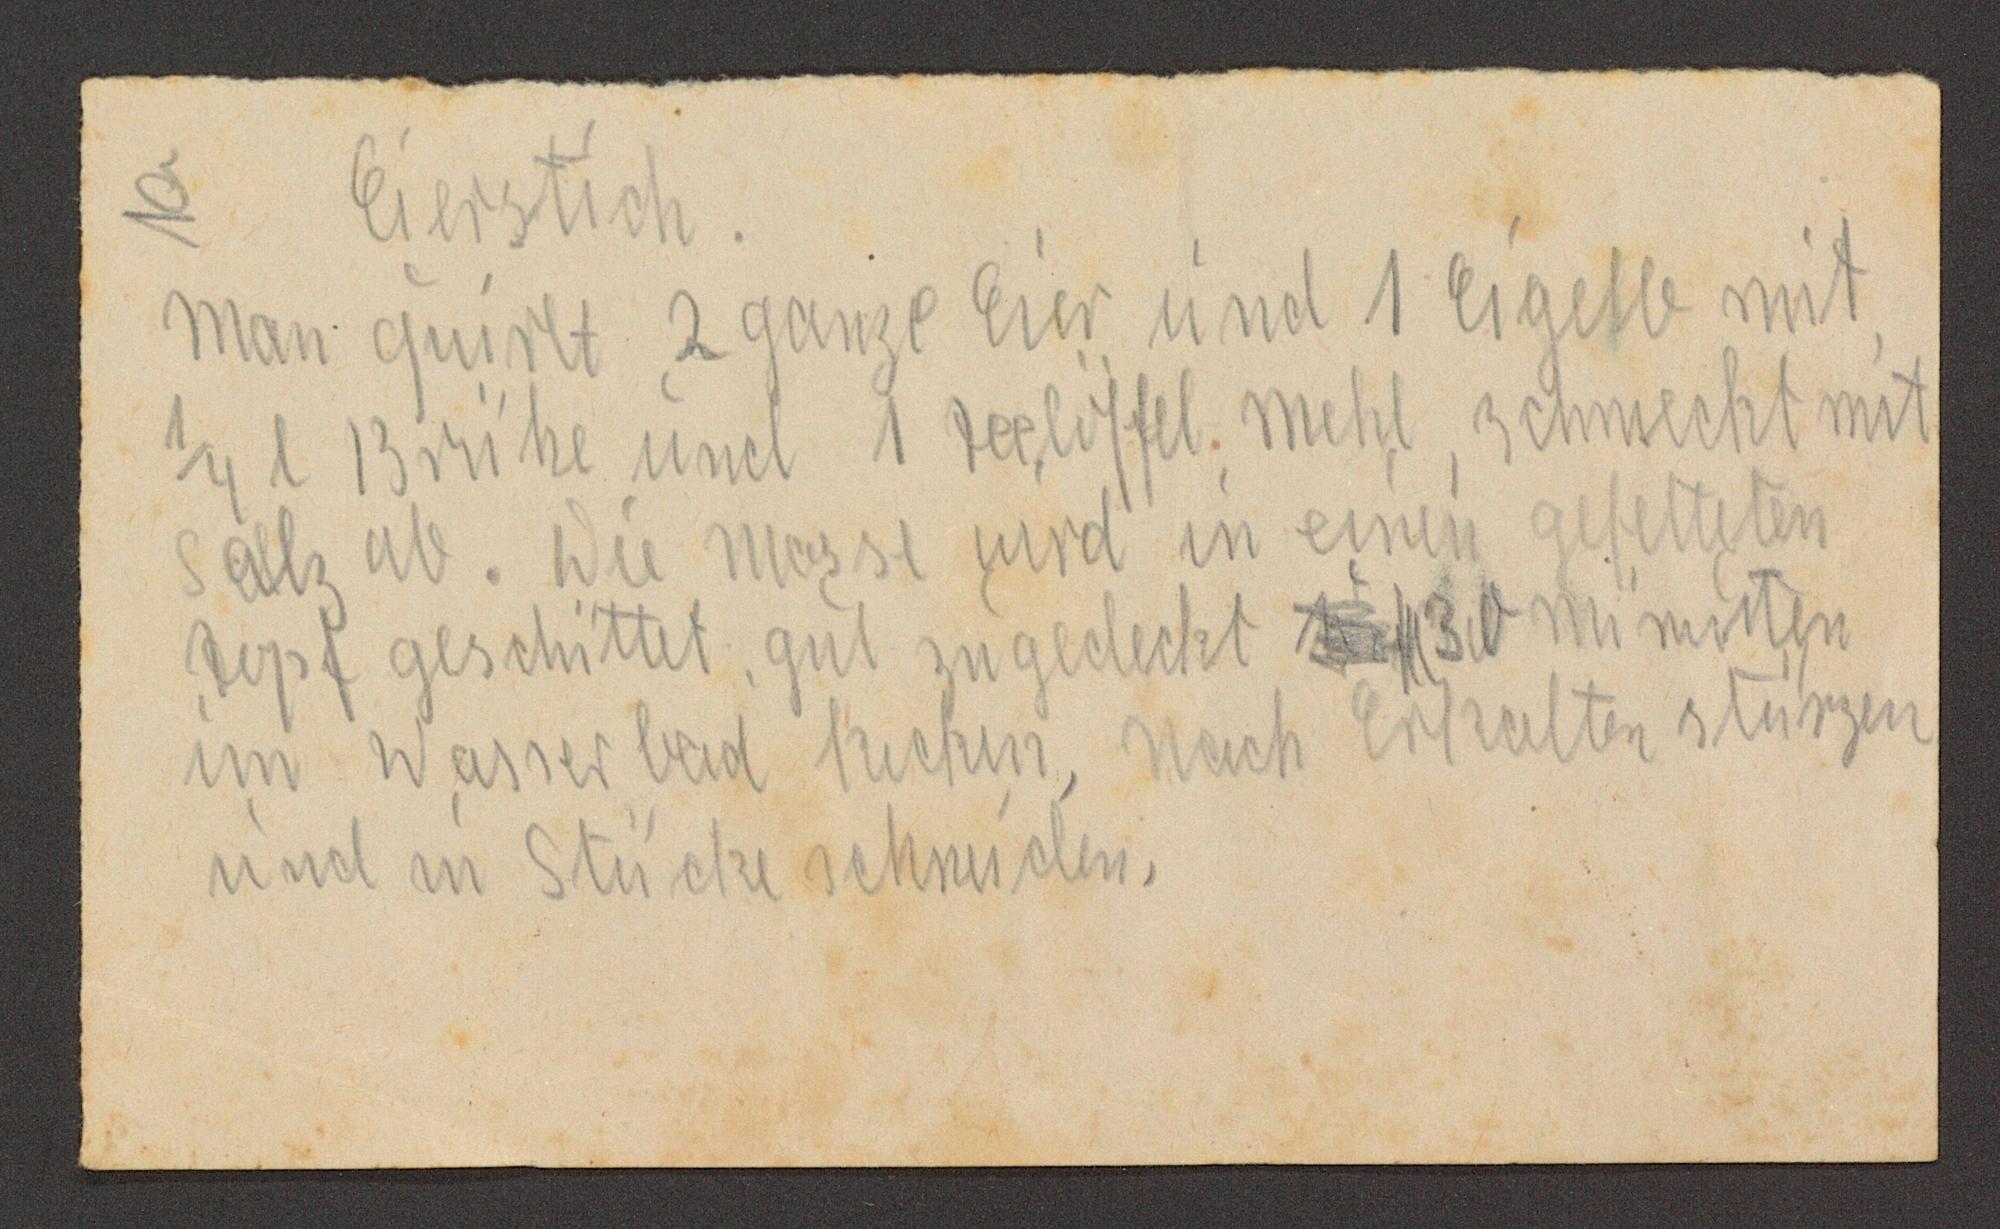 10.
Eierstich.
Man quirlt 2 ganze Eier und 1 Eigelb mit
1/4 l Brühe und 1 Teelöffel Mehl, schmeckt mit
Salz ab. Die Masse wird in einen gefetteten
Topf geschüttet, gut zugedeckt 30 Minuten
im Wasserbad kochen, nach Erkalten stürzen
und in Stücke schneiden.